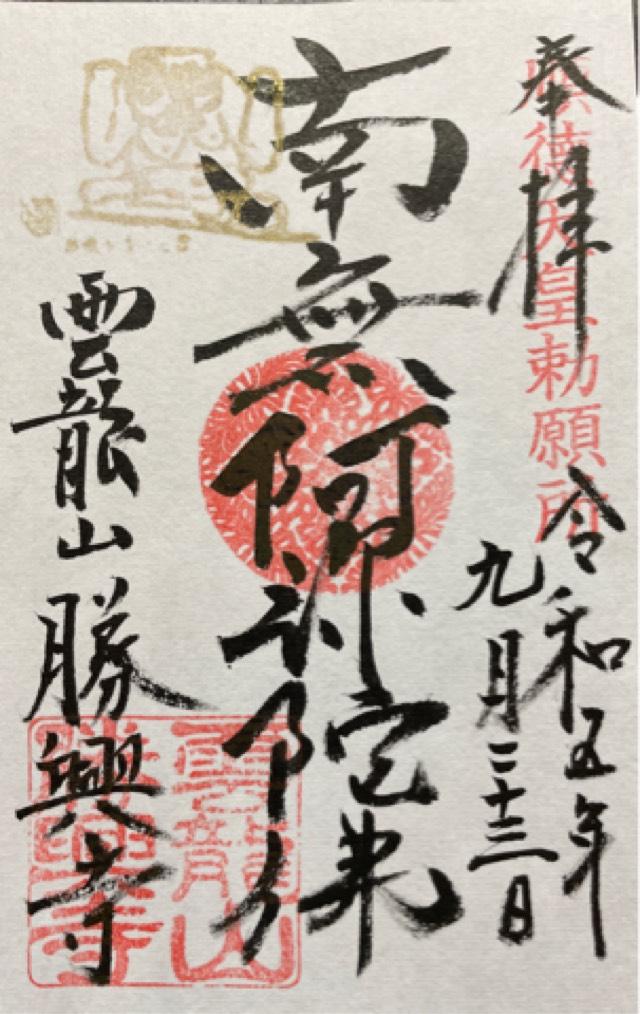 奉拝
順徳天皇勅願所
令和五年
九月二十三日
南無阿弥陀佛
雲龍山勝興寺
雲龍山
勝興寺